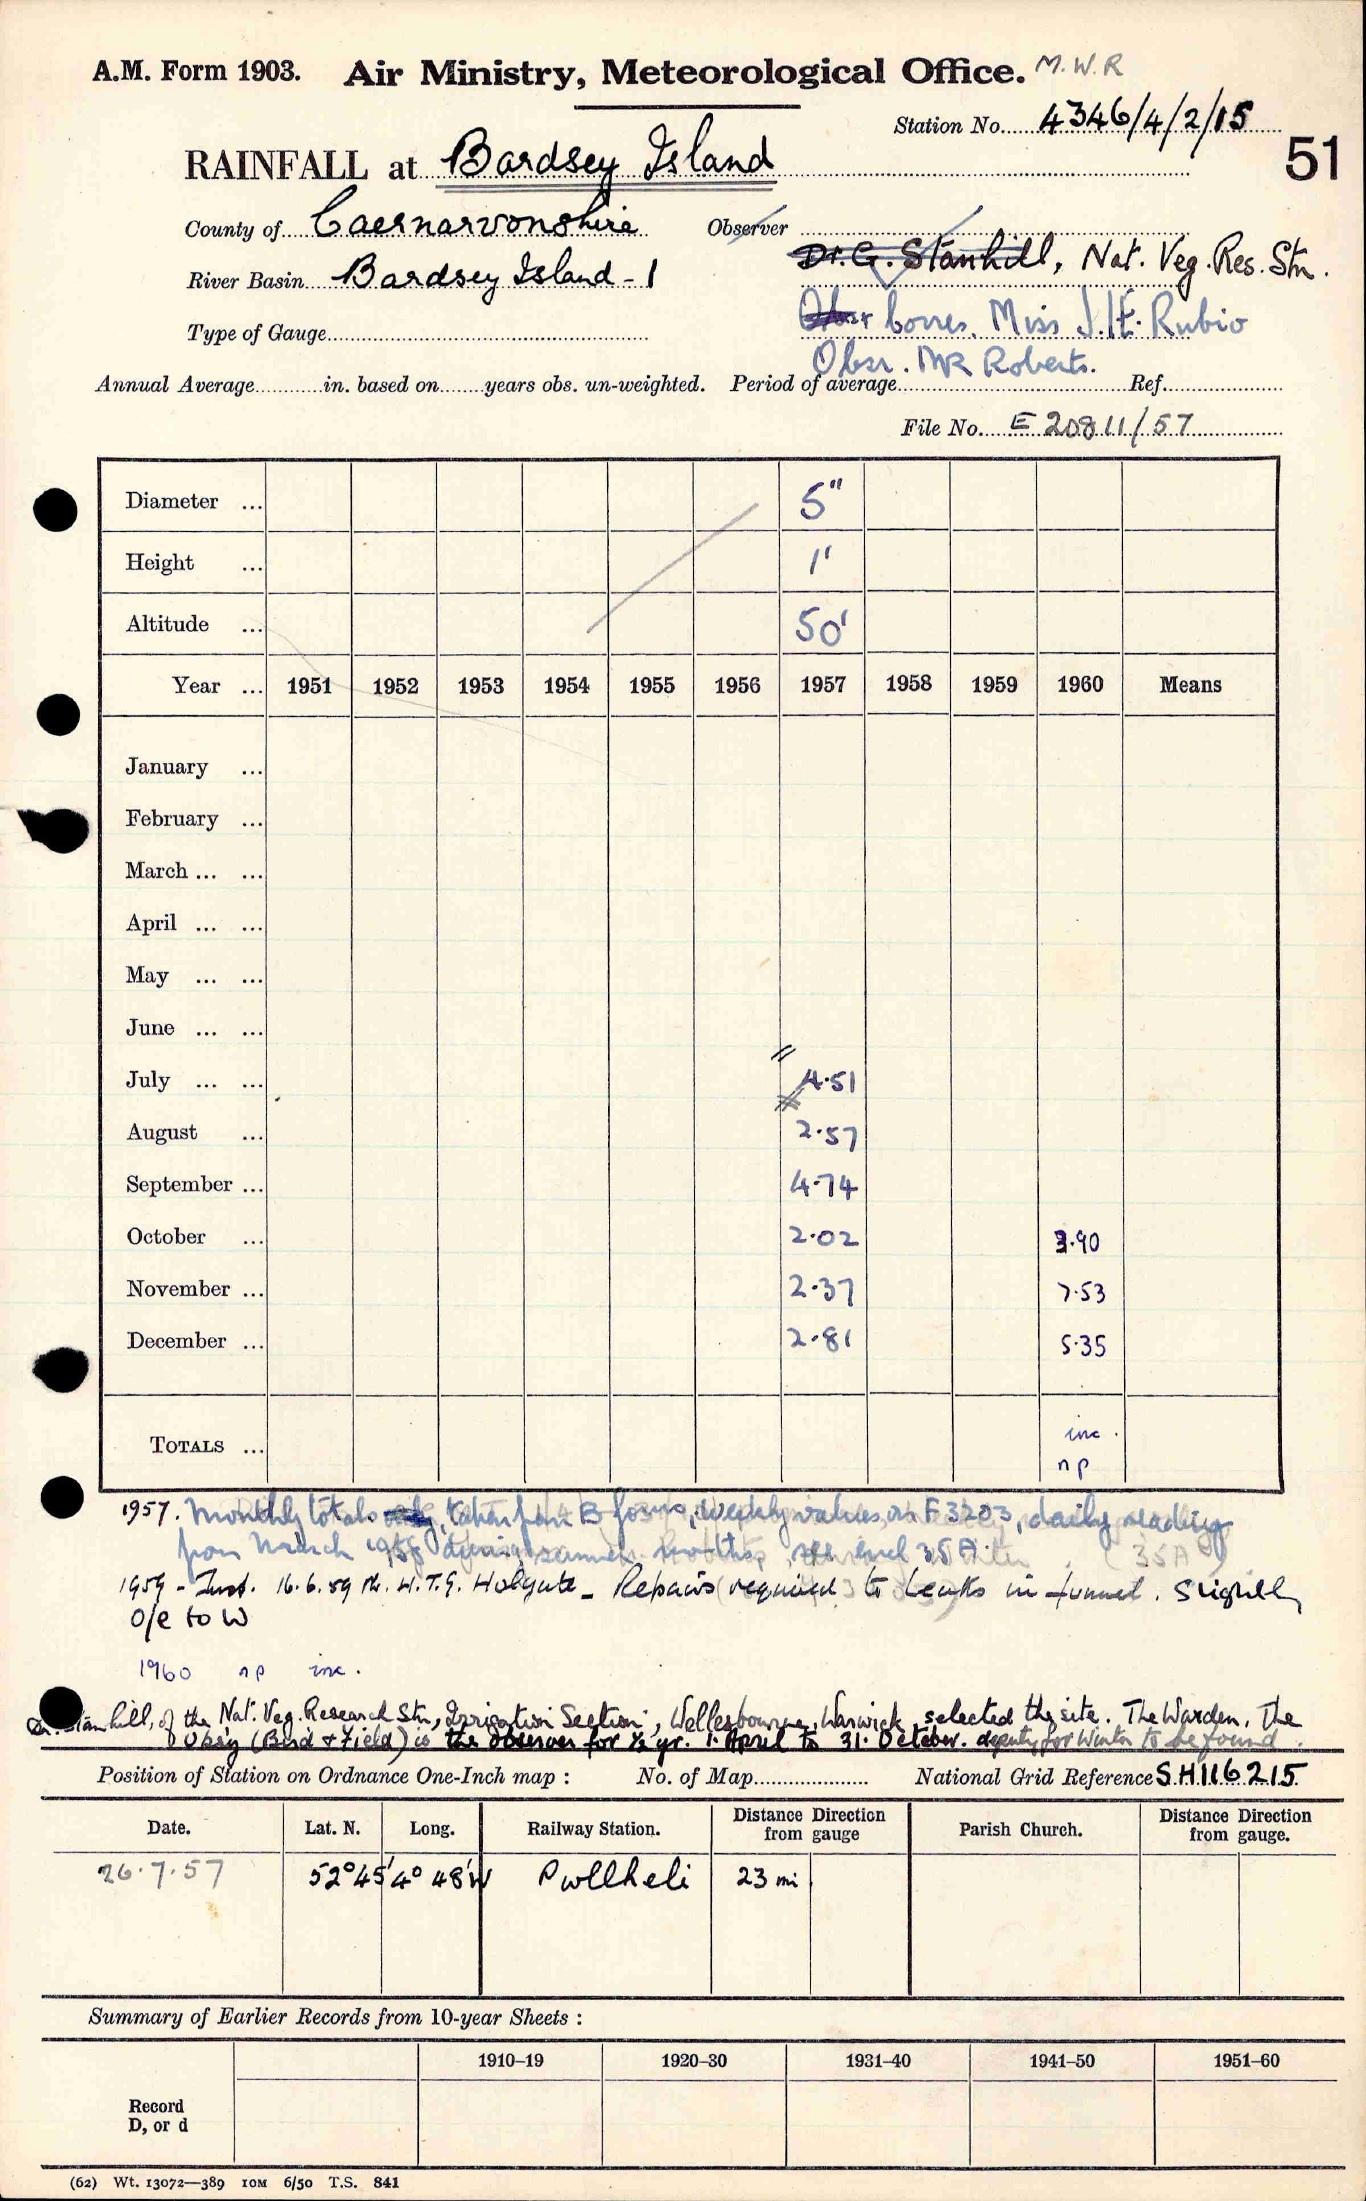 A.M. Form 1903. Air Ministry, Meteorological Office. M.W.R
Station No. 4346/4/2/15
51
RAINFALL at Bardsey Island
County of Caernarvonshire Observer
Dr. G. Stanhill, Nat. Veg. Res. Stn.
River Basin Bardsey Island - 1
Corres. Miss J.E. Rubio
Type of Gauge
Obsr. Mr Roberts.
Annual Average in. based on years obs. un-weighted. Period of average Ref.
File No. E 20811/57
Diameter ... 5"
Height ... 1'
Altitude ... 50'
Year ... 1951 1952 1953 1954 1955 1956 1957 1958 1959 1960 Means
January ...
February ...
March ... ...
April ... ...
May ... ...
June ... ...
July ... ... 4.51
August ... 2.57
September ... 4.74
October ... 2.02 3.90
November ... 2.37 7.53
December ... 2.81 5.35
TOTALS ... inc.
np
1957. Monthly totals taken from B forms, weekly values on F3203, daily reading
from March 1958 during summer months, see encl 35A.
1959 - Inst. 16.6.59 Mr. H.T.G. Holgate - Repairs required to leaks in funnel. Slightly
O/e to W
1960 np inc.
Dr. Stanhill, of the Nat. Veg. Research Stn, Irrigation Section, Wellesbourne, Warwick selected the site. The Warden, The
Obs'y (Bird & Field) is the observer for ½ yr. 1. April to 31. October. deputy for Winter to be found.
Position of Station on Ordnance One-Inch map : No. of Map National Grid Reference SH116215
Date. Lat. N. Long. Railway Station. Distance Direction from gauge Parish Church. Distance Direction from gauge.
26.7.57 52°45' 4° 48'W Pwllheli 23 mi
Summary of Earlier Records from 10-year Sheets :
1910–19 1920–30 1931–40 1941–50 1951–60
Record
D, or d
(62) Wt. 13072—389 10M 6/50 T.S. 841